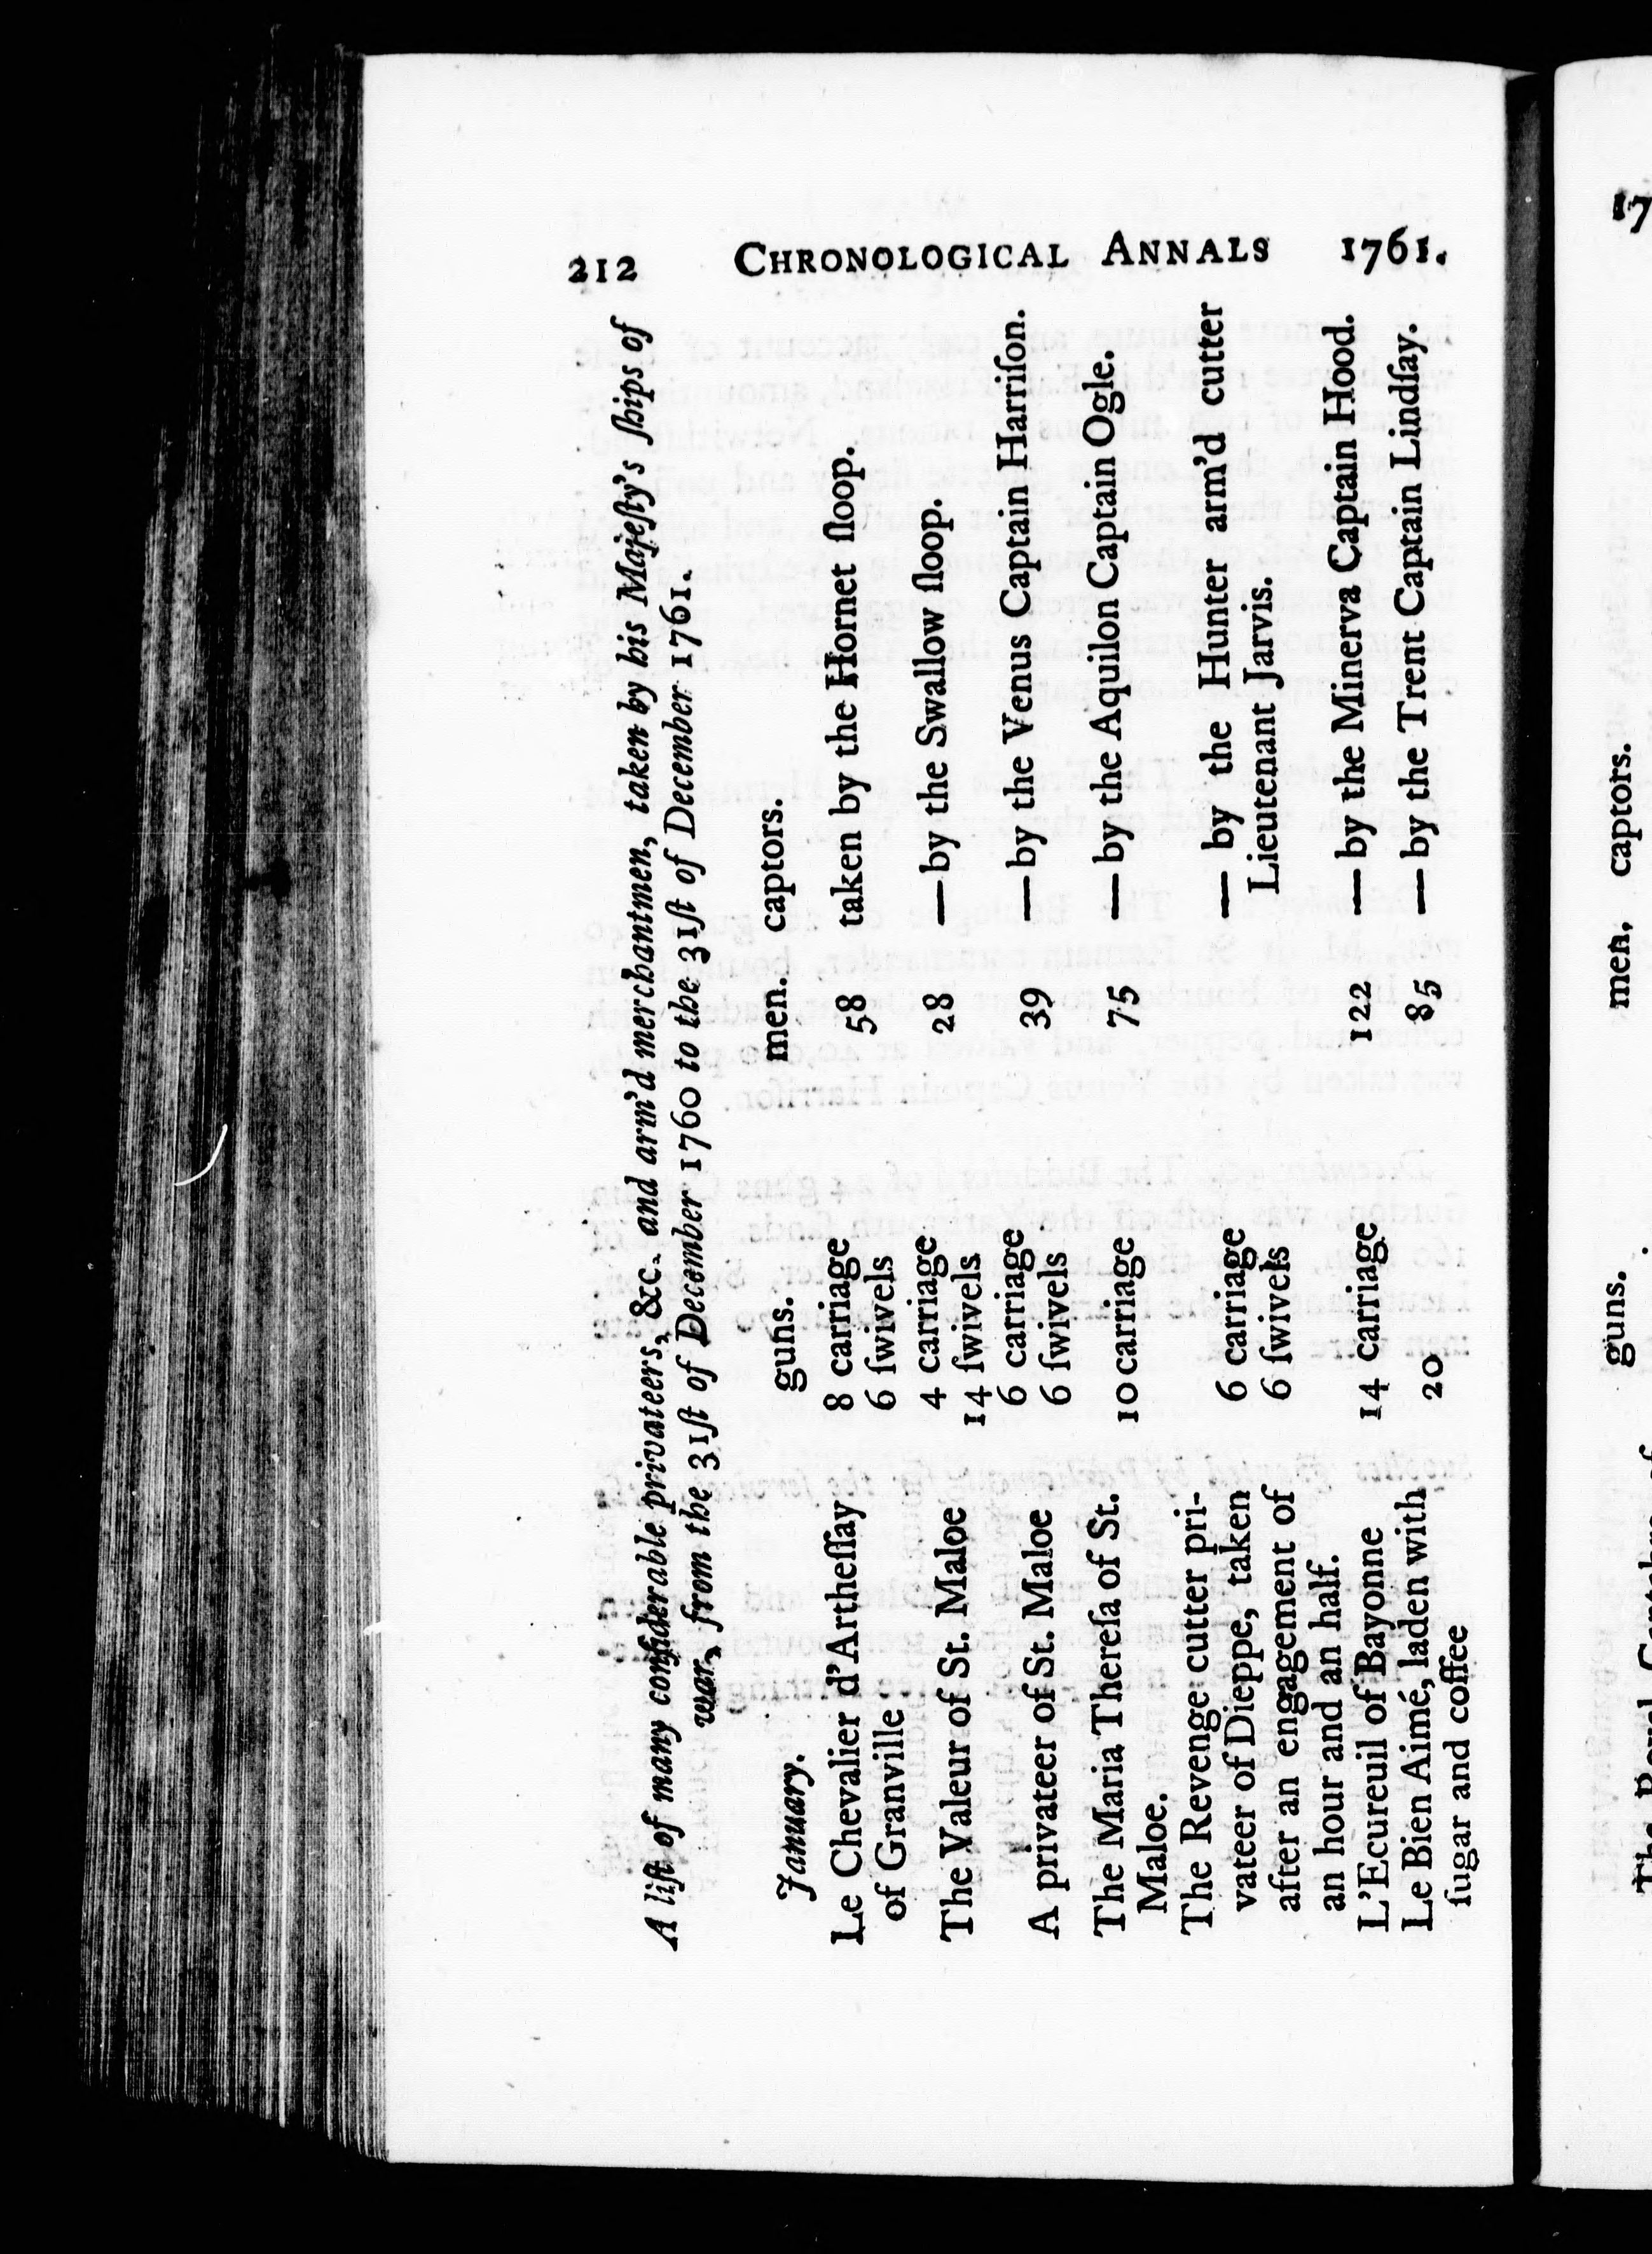 212 CHRONOLOGICAL ANNALS 1761.
A liſt of many conſiderable privateers, &c. and arm'd merchantmen, taken by his Majeſty's ſhips of
war, from the 31ſt of December 1760 to the 31ſt of December 1761.
January. guns. men. captors.
Le Chevalier d'Artheſſay 8 carriage 58 taken by the Hornet ſloop.
of Granville 6 ſwivels
The Valeur of St. Maloe 4 carriage 28 — by the Swallow ſloop.
14 ſwivels
A privateer of St. Maloe 6 carriage 39 — by the Venus Captain Harriſon.
6 ſwivels
The Maria Thereſa of St. 10 carriage 75 — by the Aquilon Captain Ogle.
Maloe.
The Revenge cutter pri-
vateer of Dieppe, taken 6 carriage — by the Hunter arm'd cutter
after an engagement of 6 ſwivels Lieutenant Jarvis.
an hour and an half.
L'Ecureuil of Bayonne 14 carriage 122 — by the Minerva Captain Hood.
Le Bien Aimé, laden with 20 85 — by the Trent Captain Lindſay.
ſugar and coffee
17
guns. men, captors.